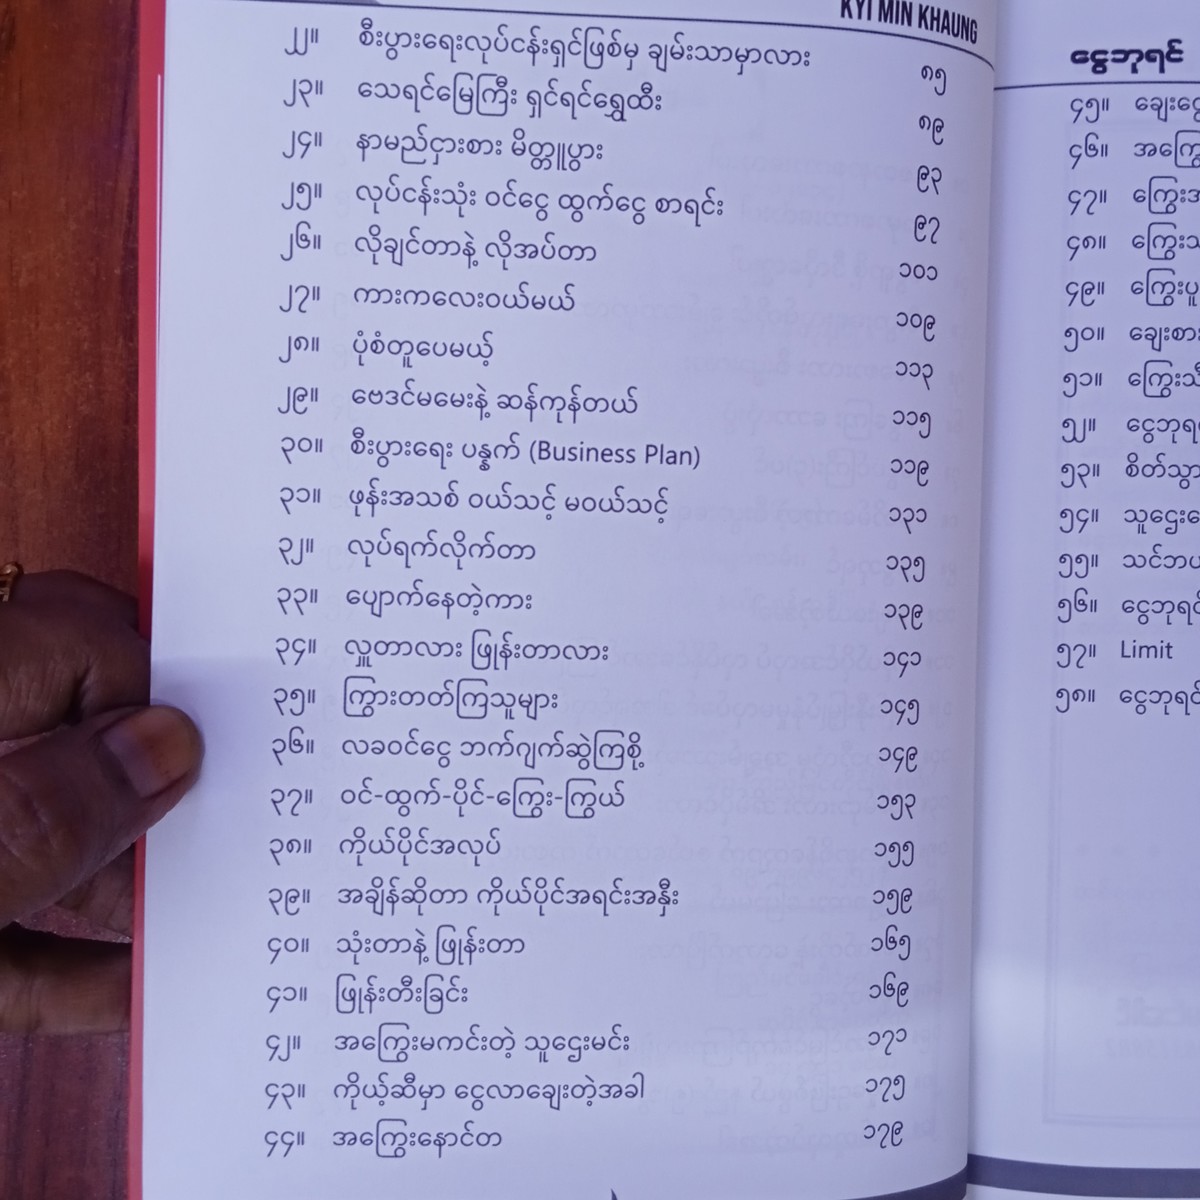 KYI MIN KHAUNG
၂၂။ စီးပွားရေးလုပ်ငန်းရှင်ဖြစ်မှ ချမ်းသာမှာလား ၈၅
၂၃။ သေရင်မြေကြီး ရှင်ရင်ရွှေထီး ၈၉
၂၄။ နာမည်ငှားစား မိတ္တူပွား ၉၃
၂၅။ လုပ်ငန်းသုံး ဝင်ငွေ ထွက်ငွေ စာရင်း ၉၇
၂၆။ လိုချင်တာနဲ့ လိုအပ်တာ ၁၀၁
၂၇။ ကားကလေးဝယ်မယ် ၁၀၉
၂၈။ ပုံစံတူပေမယ့် ၁၁၃
၂၉။ ဗေဒင်မမေးနဲ့ ဆန်ကုန်တယ် ၁၁၅
၃၀။ စီးပွားရေး ပန္နက် (Business Plan) ၁၁၉
၃၁။ ဖုန်းအသစ် ဝယ်သင့် မဝယ်သင့် ၁၃၁
၃၂။ လုပ်ရက်လိုက်တာ ၁၃၅
၃၃။ ပျောက်နေတဲ့ကား ၁၃၉
၃၄။ လှူတာလား ဖြုန်းတာလား ၁၄၁
၃၅။ ကြွားတတ်ကြသူများ ၁၄၅
၃၆။ လခဝင်ငွေ ဘက်ဂျက်ဆွဲကြစို့ ၁၄၉
၃၇။ ဝင်-ထွက်-ပိုင်-ကြွေး-ကြွယ် ၁၅၃
၃၈။ ကိုယ်ပိုင်အလုပ် ၁၅၅
၃၉။ အချိန်ဆိုတာ ကိုယ်ပိုင်အရင်းအနှီး ၁၅၉
၄၀။ သုံးတာနဲ့ ဖြုန်းတာ ၁၆၅
၄၁။ ဖြုန်းတီးခြင်း ၁၆၉
၄၂။ အကြွေးမကင်းတဲ့ သူဌေးမင်း ၁၇၁
၄၃။ ကိုယ့်ဆီမှာ ငွေလာချေးတဲ့အခါ ၁၇၅
၄၄။ အကြွေးနောင်တ ၁၇၉
ငွေဘုရင်
၄၅။
၄၆။
၄၇။
၄၈။
၄၉။
၅၀။
၅၁။
၅၂။
၅၃။
၅၄။
၅၅။
၅၆။
၅၇။ Limit
၅၈။